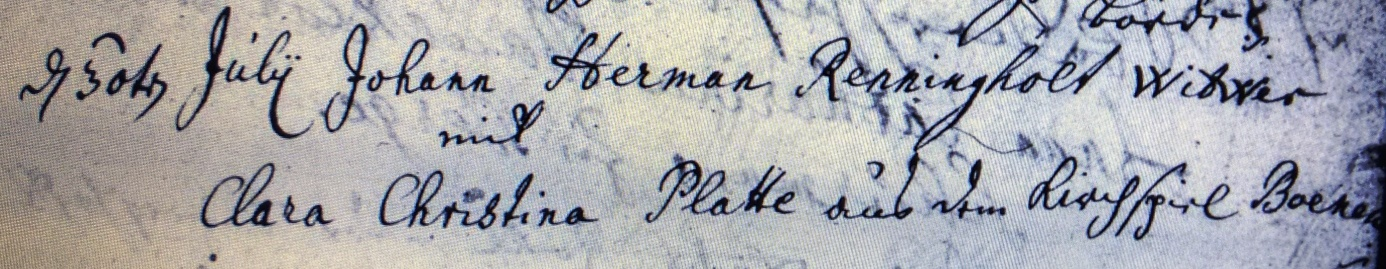 d 30ten Julÿ Johann Herman Renningholt Witwer
mit
Clara Christina Platte aus dem Kirchspiel Boenen